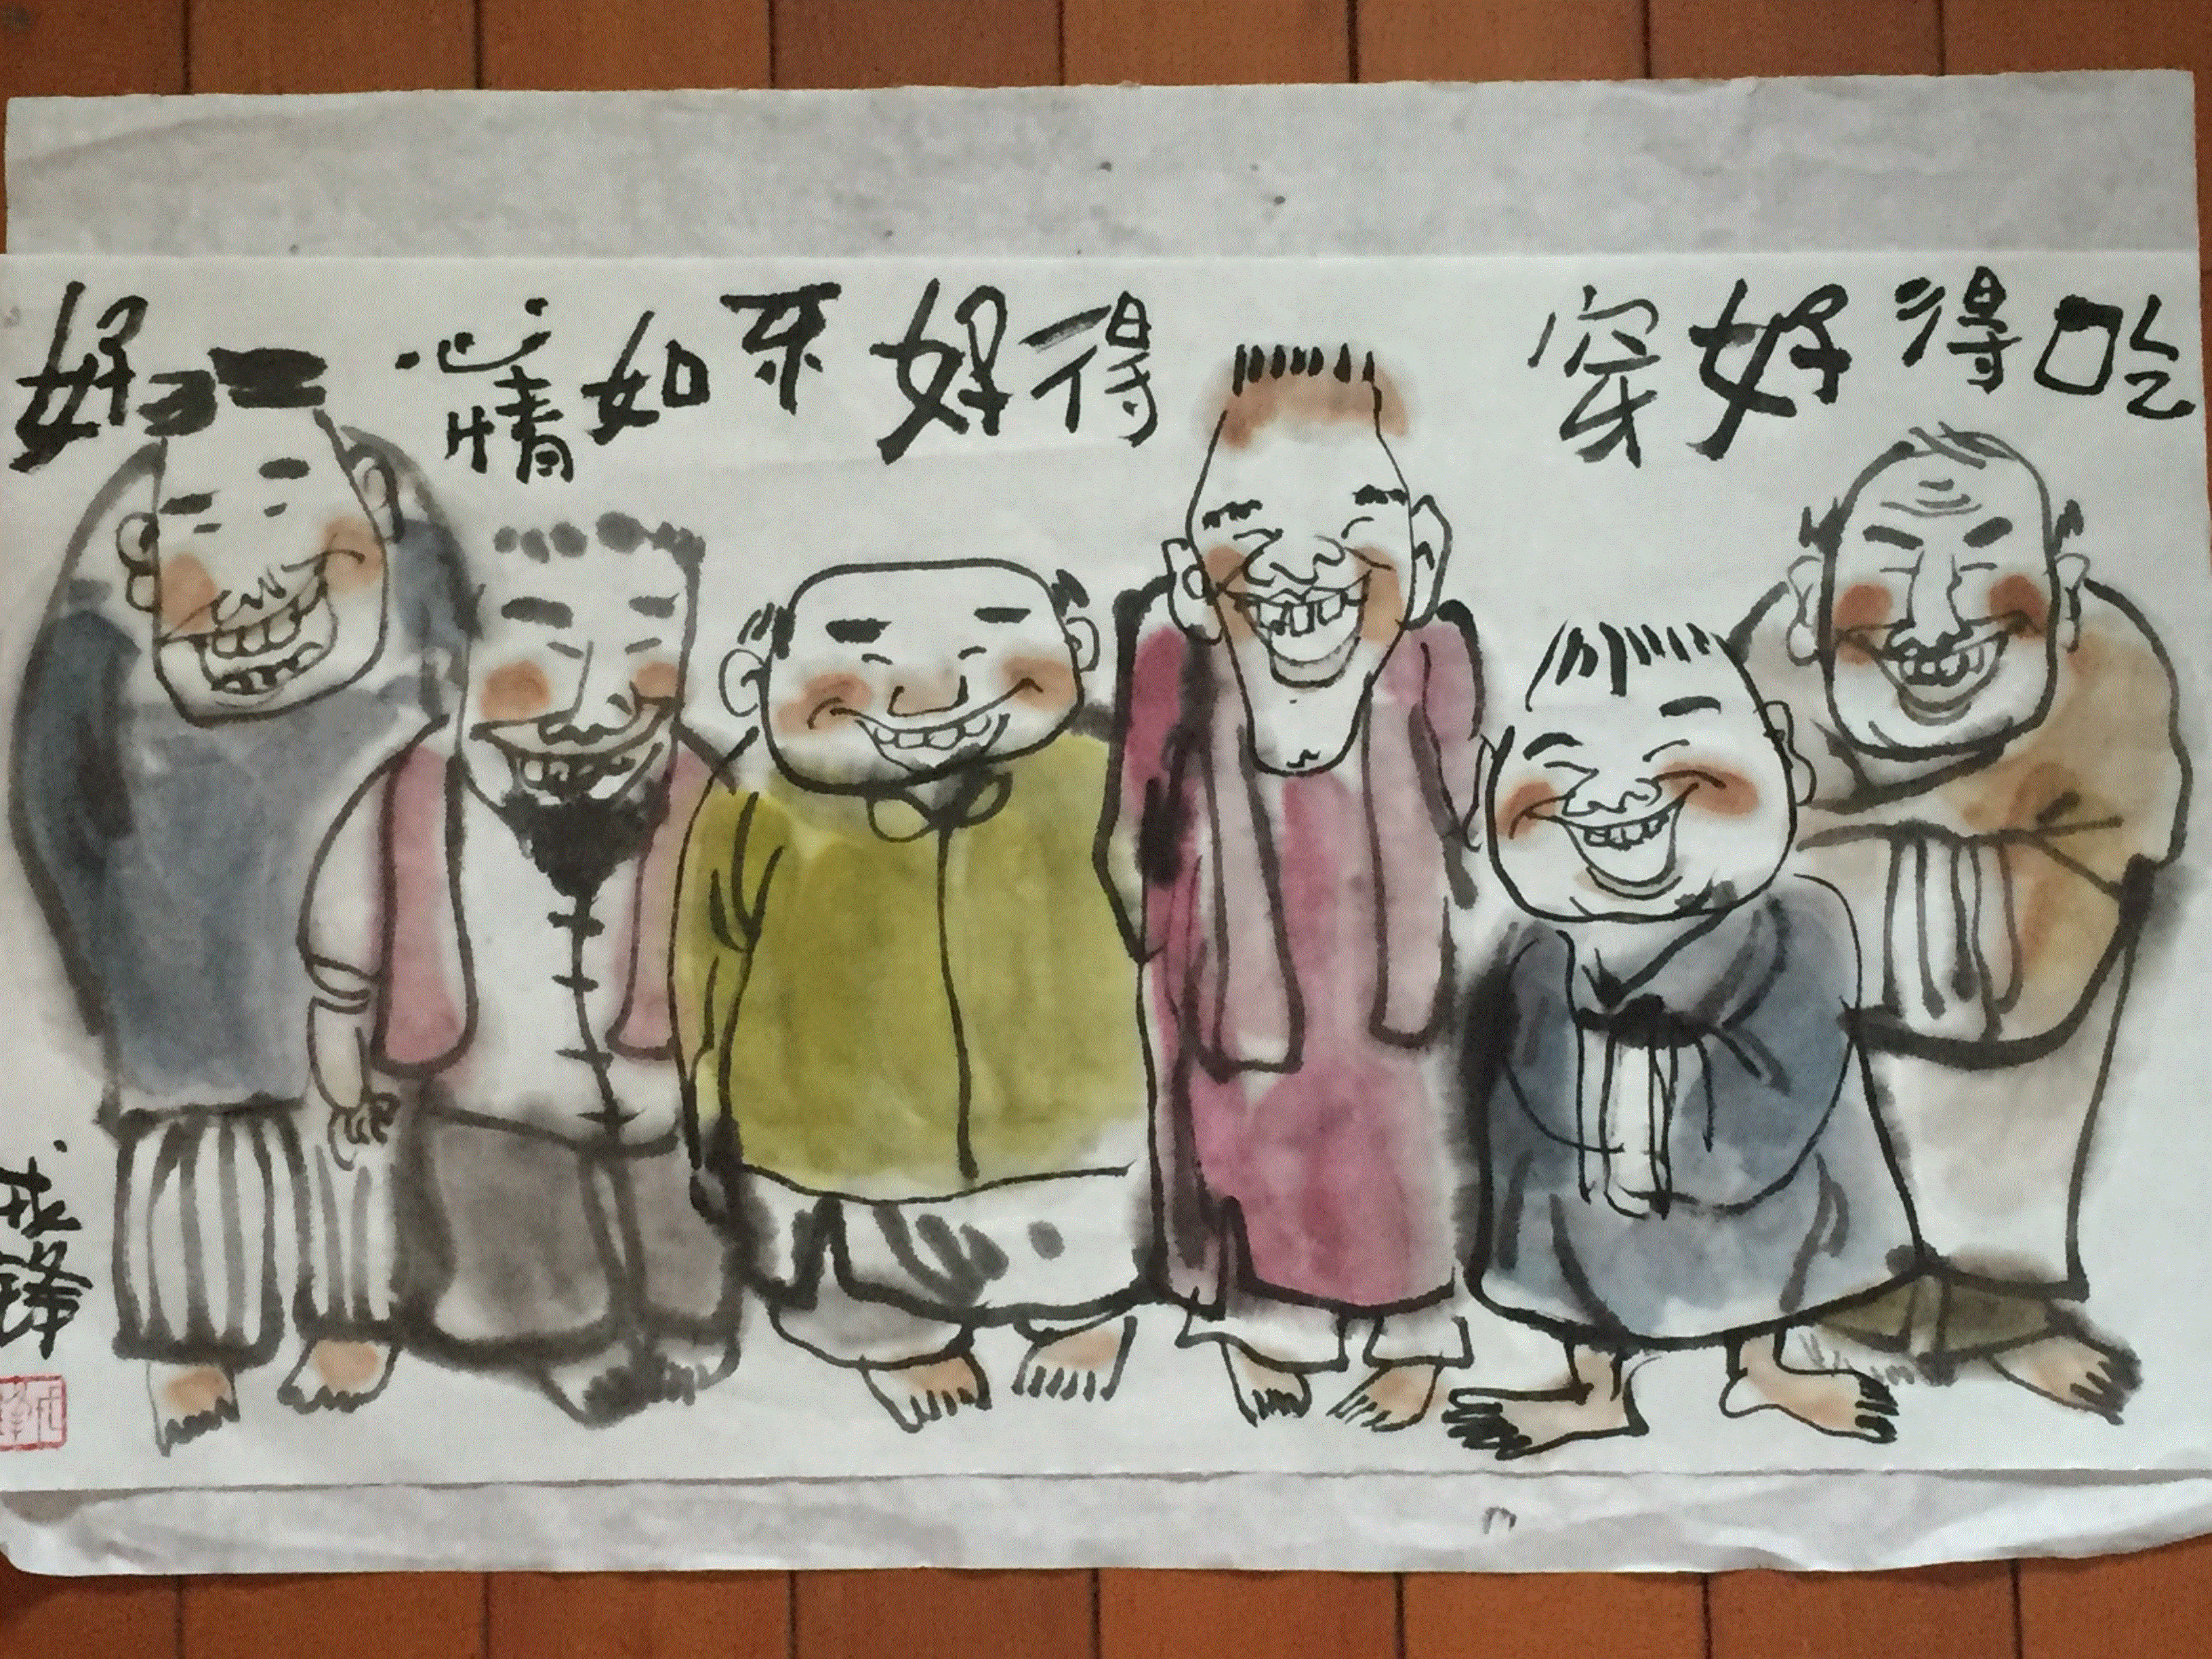 吃得好穿得好不如心情好
成锋